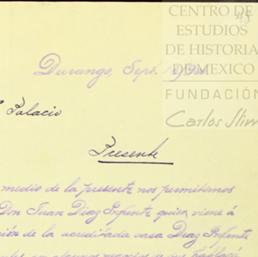 CENTRO DE
ESTUDIOS
DE HISTORIA
DE MEXICO
FUNDACIÓN
Carlos Slim
Durango, Sept.
Palacio
Presente
medio de la presente nos permitimos
Don Juan Diaz Infante quien viene á
ción de la acreditada casa Diaz Infante